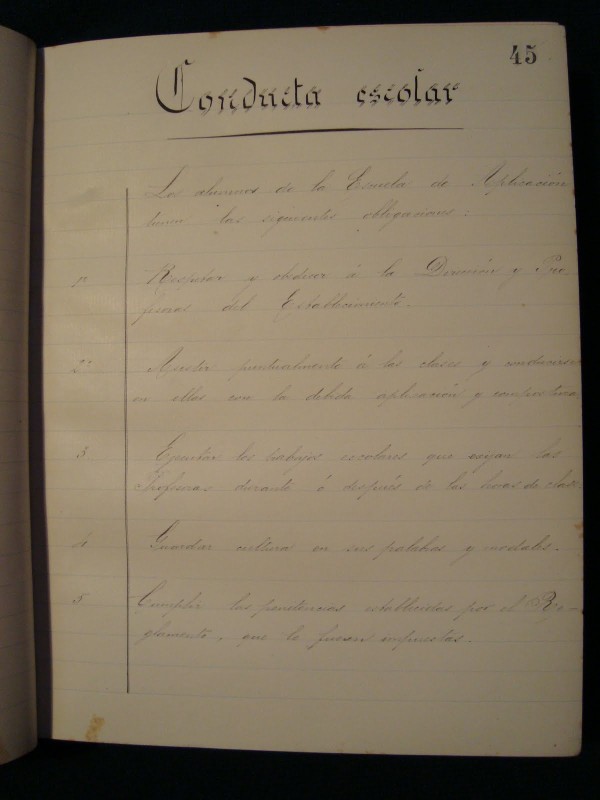 45
Conducta escolar
Los alumnos de la Escuela de Aplicación
tienen las siguientes obligaciones:
1º Respetar y obedecer á la Dirección y Pro-
fesoras del Establecimiento.
2º Asistir puntualmente á las clases y conducirse
en ellas con la debida aplicación y compostura
3 Ejecutar los trabajos escolares que exijan las
Profesoras durante ó después de las horas de clase
4 Guardar cultura en sus palabras y modales.
5 Cumplir las penitencias establecidas por el Re-
glamento, que le fueran impuestas.